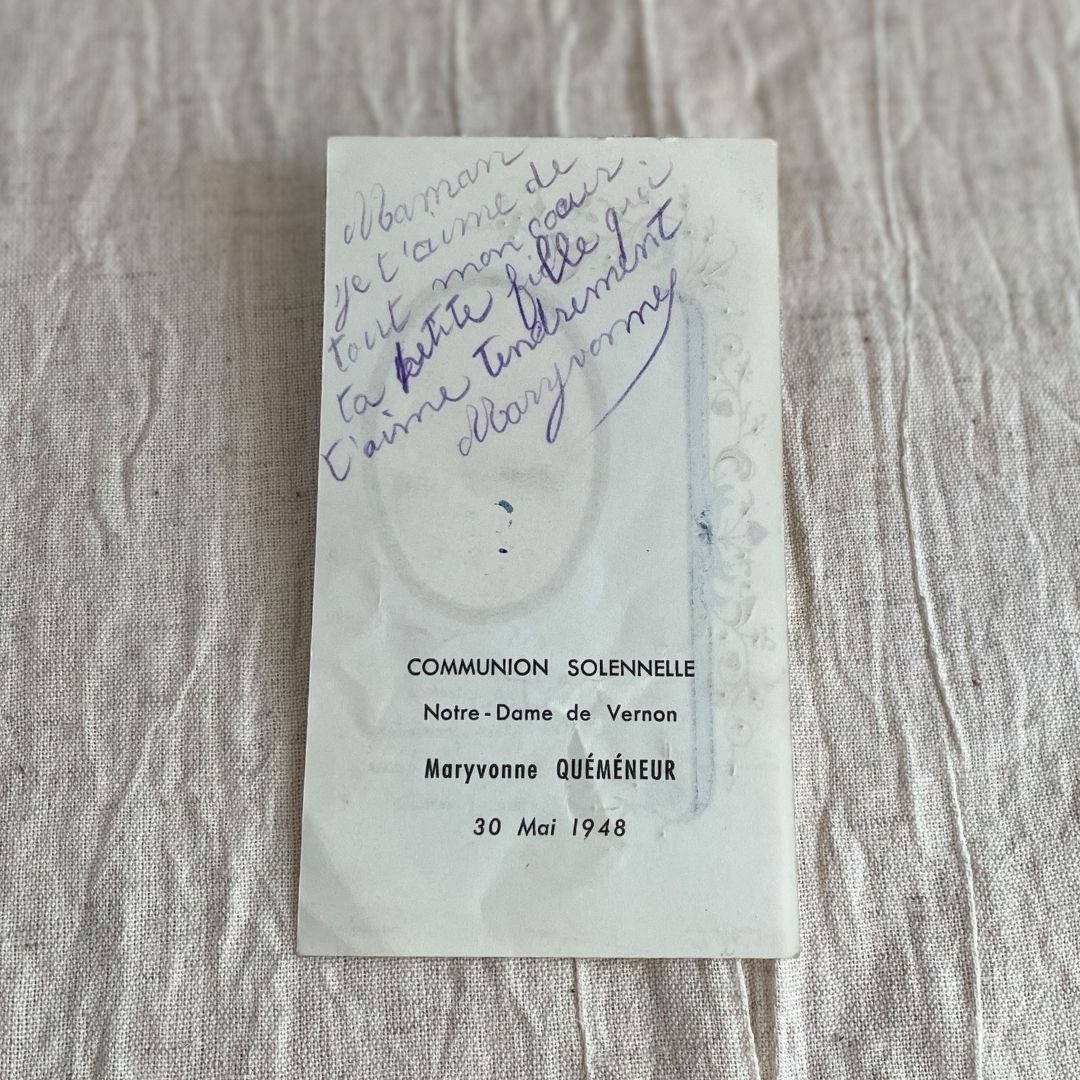 Maman
je t'aime de
tout mon cœur
ta petite fille qui
t'aime tendrement
Maryvonne
COMMUNION SOLENNELLE
Notre-Dame de Vernon
Maryvonne QUÉMÉNEUR
30 Mai 1948